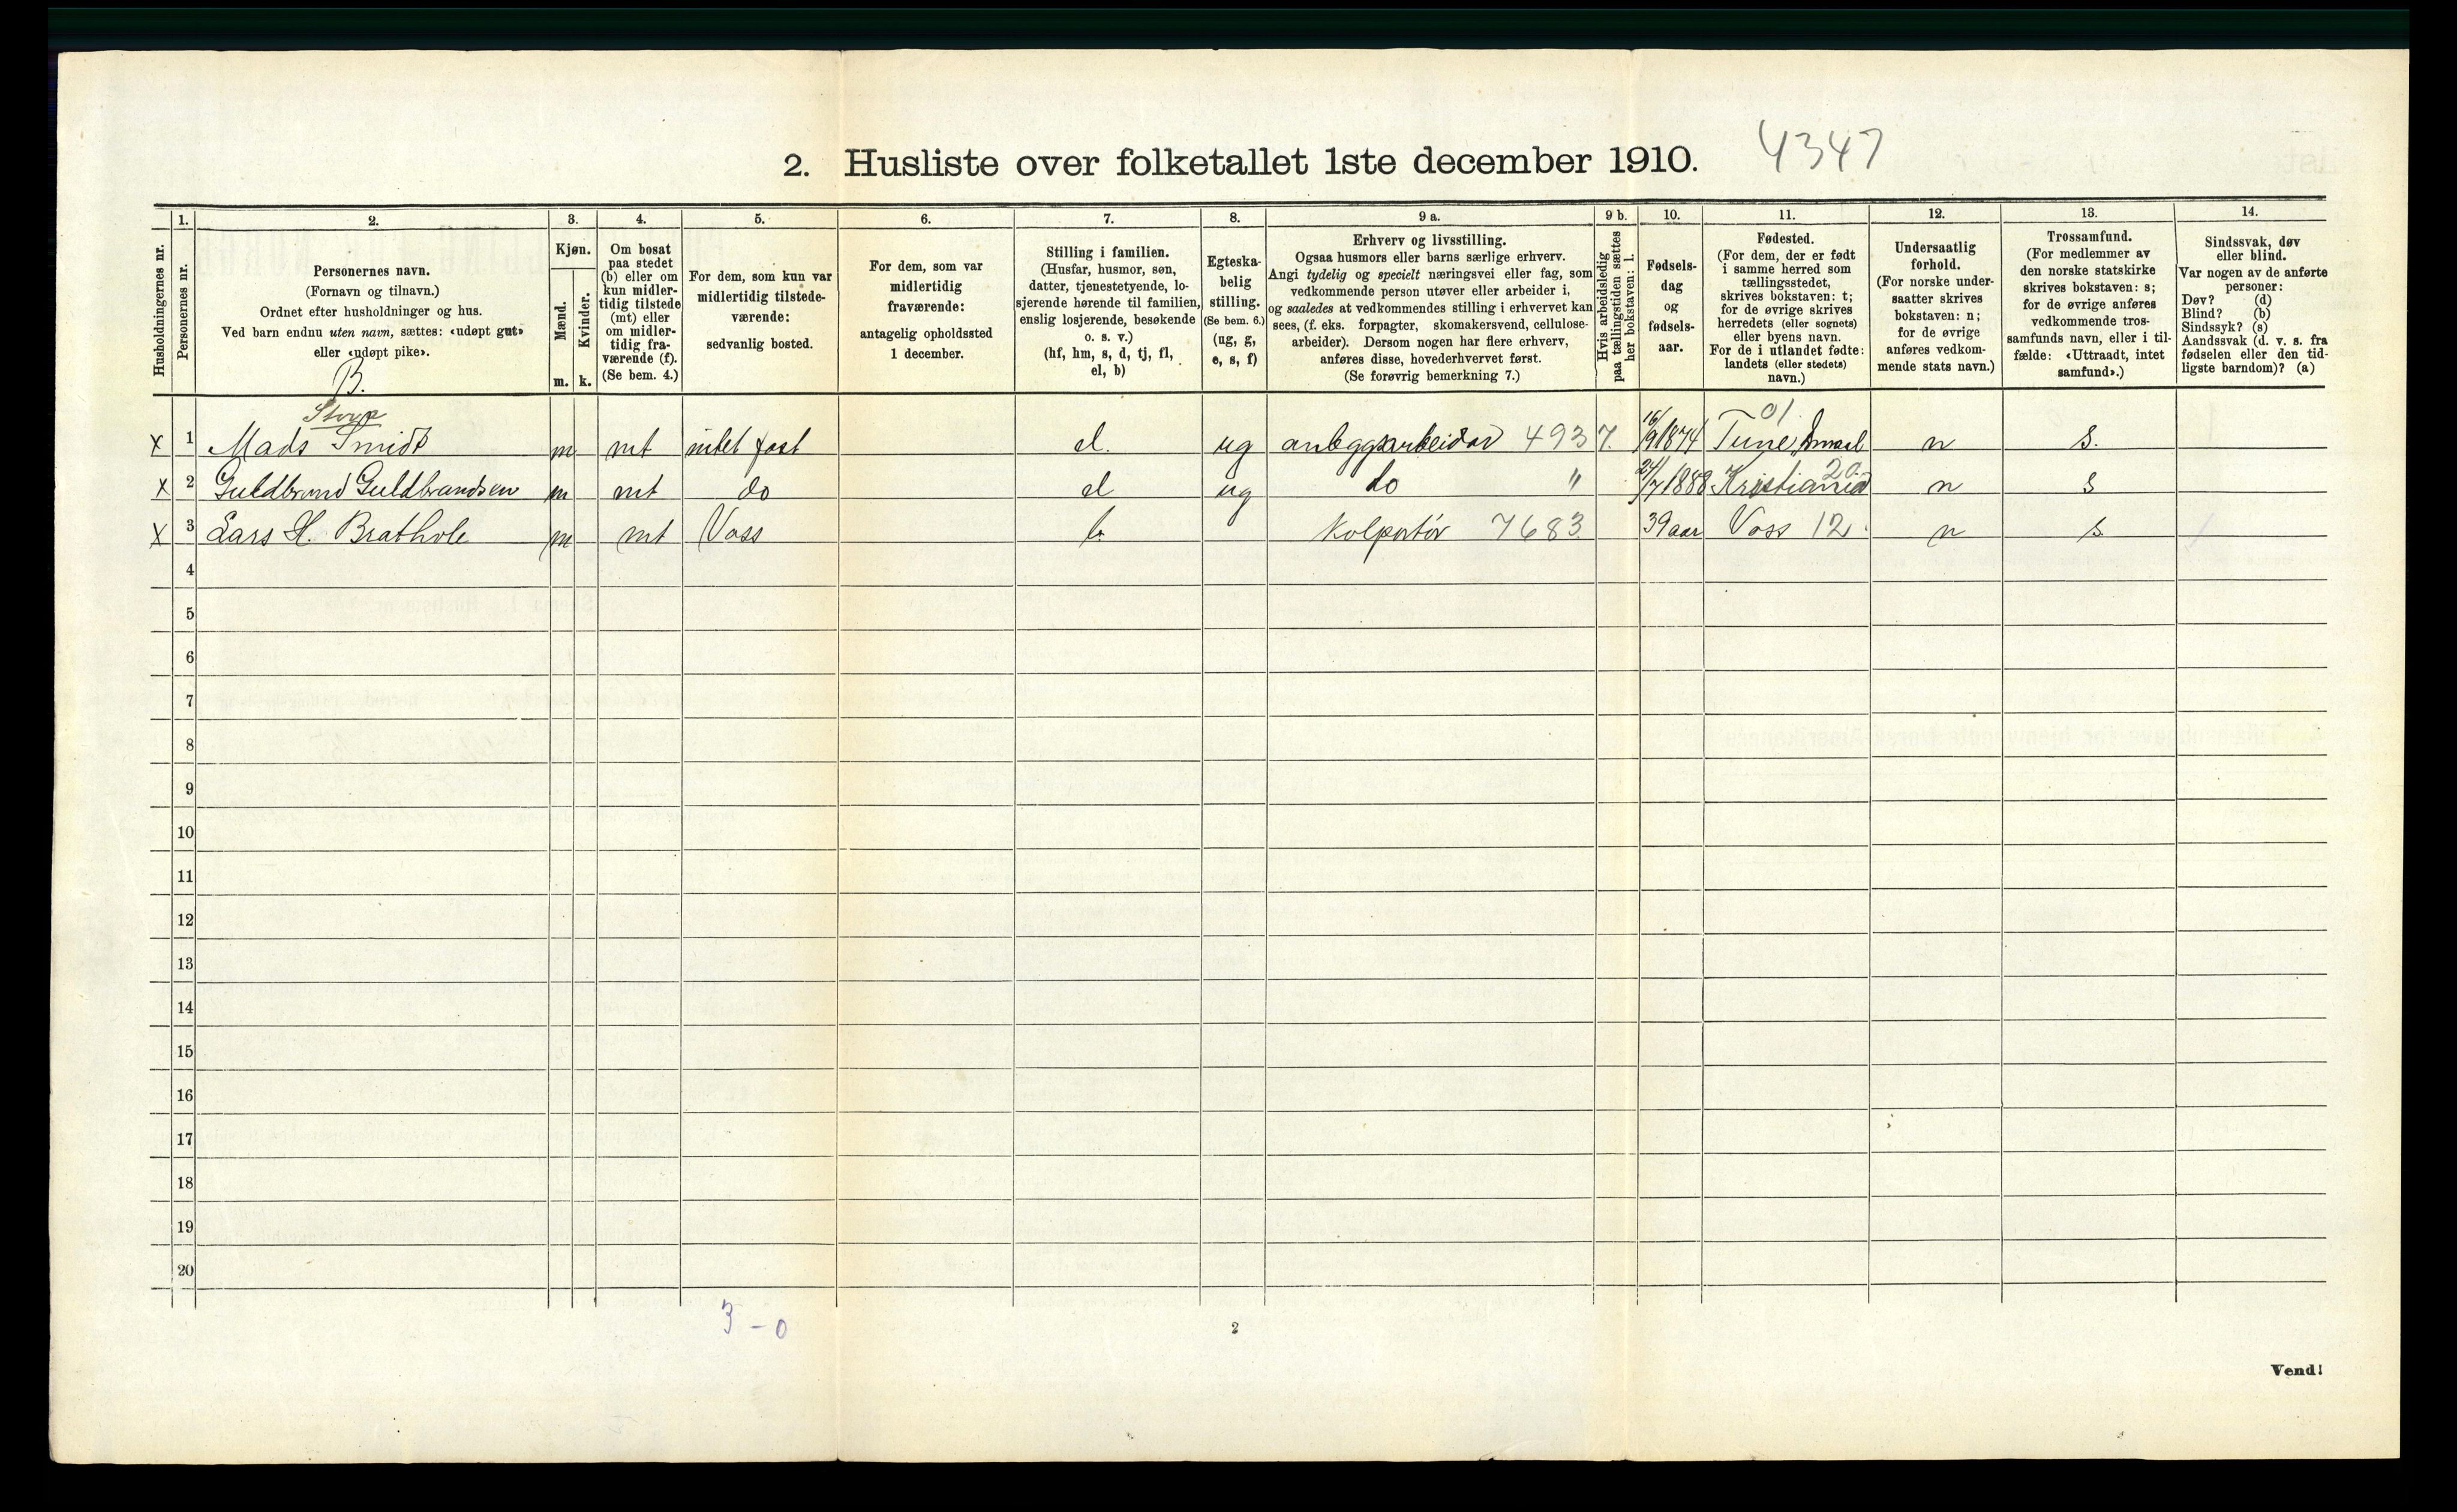 2. Husliste over folketallet 1ste december 1910. 4347
1. 2. 3. 4. 5. 6. 7. 8. 9 a. 9 b. 10. 11. 12. 13. 14.
Husholdningernes nr.
Personernes nr.
Personernes navn.
(Fornavn og tilnavn.)
Ordnet efter husholdninger og hus.
Ved barn endnu uten navn, sættes: «udøpt gut»
eller «udøpt pike».
B.
Kjøn.
Mænd.
Kvinder.
m. k.
Om bosat
paa stedet
(b) eller om
kun midler-
tidig tilstede
(mt) eller
om midler-
tidig fra-
værende (f).
(Se bem. 4.)
For dem, som kun var
midlertidig tilstede-
værende:
sedvanlig bosted.
For dem, som var
midlertidig
fraværende:
antagelig opholdssted
1 december.
Stilling i familien.
(Husfar, husmor, søn,
datter, tjenestetyende, lo-
sjerende hørende til familien,
enslig losjerende, besøkende
o. s. v.)
(hf, hm, s, d, tj, fl,
el, b)
Egteska-
belig
stilling.
(Se bem. 6.)
(ug, g,
e, s, f)
Erhverv og livsstilling.
Ogsaa husmors eller barns særlige erhverv.
Angi tydelig og specielt næringsvei eller fag, som
vedkommende person utøver eller arbeider i,
og saaledes at vedkommendes stilling i erhvervet kan
sees, (f. eks. forpagter, skomakersvend, cellulose-
arbeider). Dersom nogen har flere erhverv,
anføres disse, hovederhvervet først.
(Se forøvrig bemerkning 7.)
Hvis arbeidsledig
paa tællingstiden sættes
her bokstaven: l.
Fødsels-
dag
og
fødsels-
aar.
Fødested.
(For dem, der er født
i samme herred som
tællingsstedet,
skrives bokstaven: t;
for de øvrige skrives
herredets (eller sognets)
eller byens navn.
For de i utlandet fødte:
landets (eller stedets)
navn.)
Undersaatlig
forhold.
(For norske under-
saatter skrives
bokstaven: n;
for de øvrige
anføres vedkom-
mende stats navn.)
Trossamfund.
(For medlemmer av
den norske statskirke
skrives bokstaven: s;
for de øvrige anføres
vedkommende tros-
samfunds navn, eller i til-
fælde: «Uttraadt, intet
samfund».)
Sindssvak, døv
eller blind.
Var nogen av de anførte
personer:
Døv? (d)
Blind? (b)
Sindssyk? (s)
Aandssvak (d. v. s. fra
fødselen eller den tid-
ligste barndom)? (a)
01
x 1 Mads Smidt m mt intet fast el. ug anleggsarbeider 4937. 16/9 1874 Tune, n s.
x 2 Guldbrand Guldbrandsen m mt do el ug do " 24/7 1888 Kristiania 20. n s
x 3 Lars H. Brathole m mt Voss b. Kolportör 7683. 39 aar Voss 12. n s.
4
5
6
7
8
9
10
11
12
13
14
15
16
17
18
19
20
3 - 0
2
Vend!